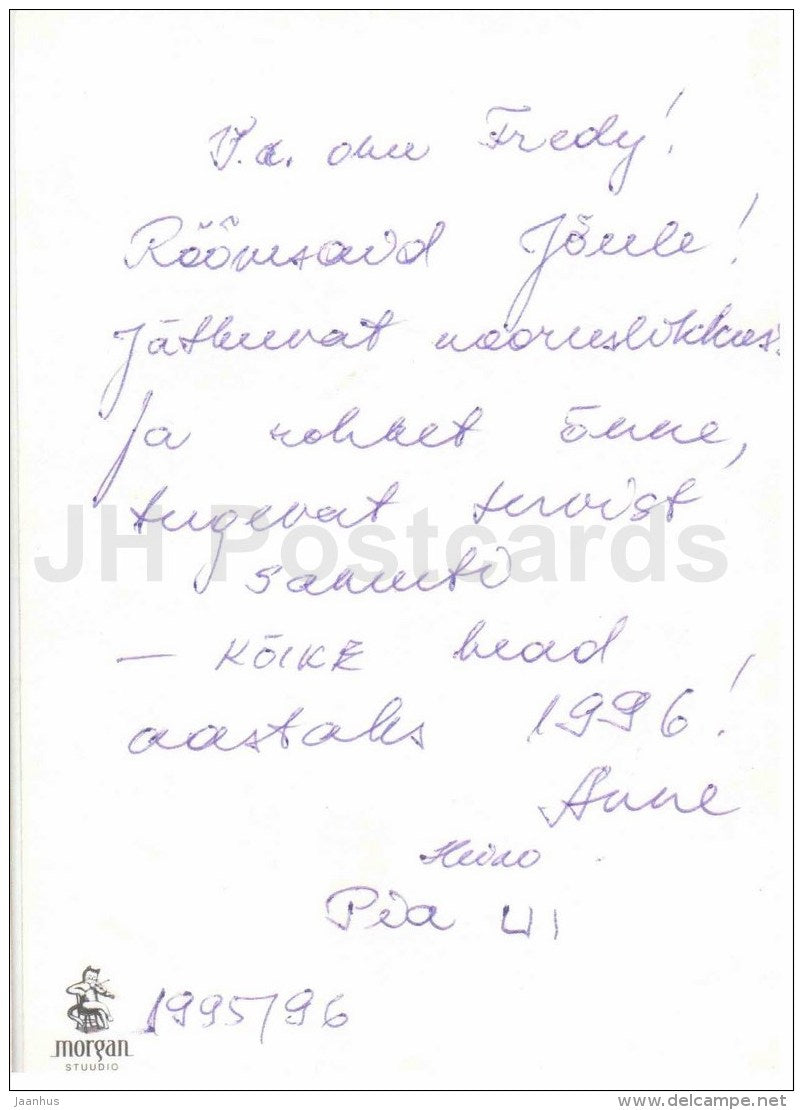 V.a. onu Fredy!
Rõõmsaid Jõule!
Jätkuvat nooruslikkus.
Ja rohket õnne,
tugevat tervist
samuti
JH Postcards
— KÕIKE head
aastaks 1996!
Anne
Heino
Pia
1995/96
morgan
STUUDIO
Jaanhus
www.delcampe.net